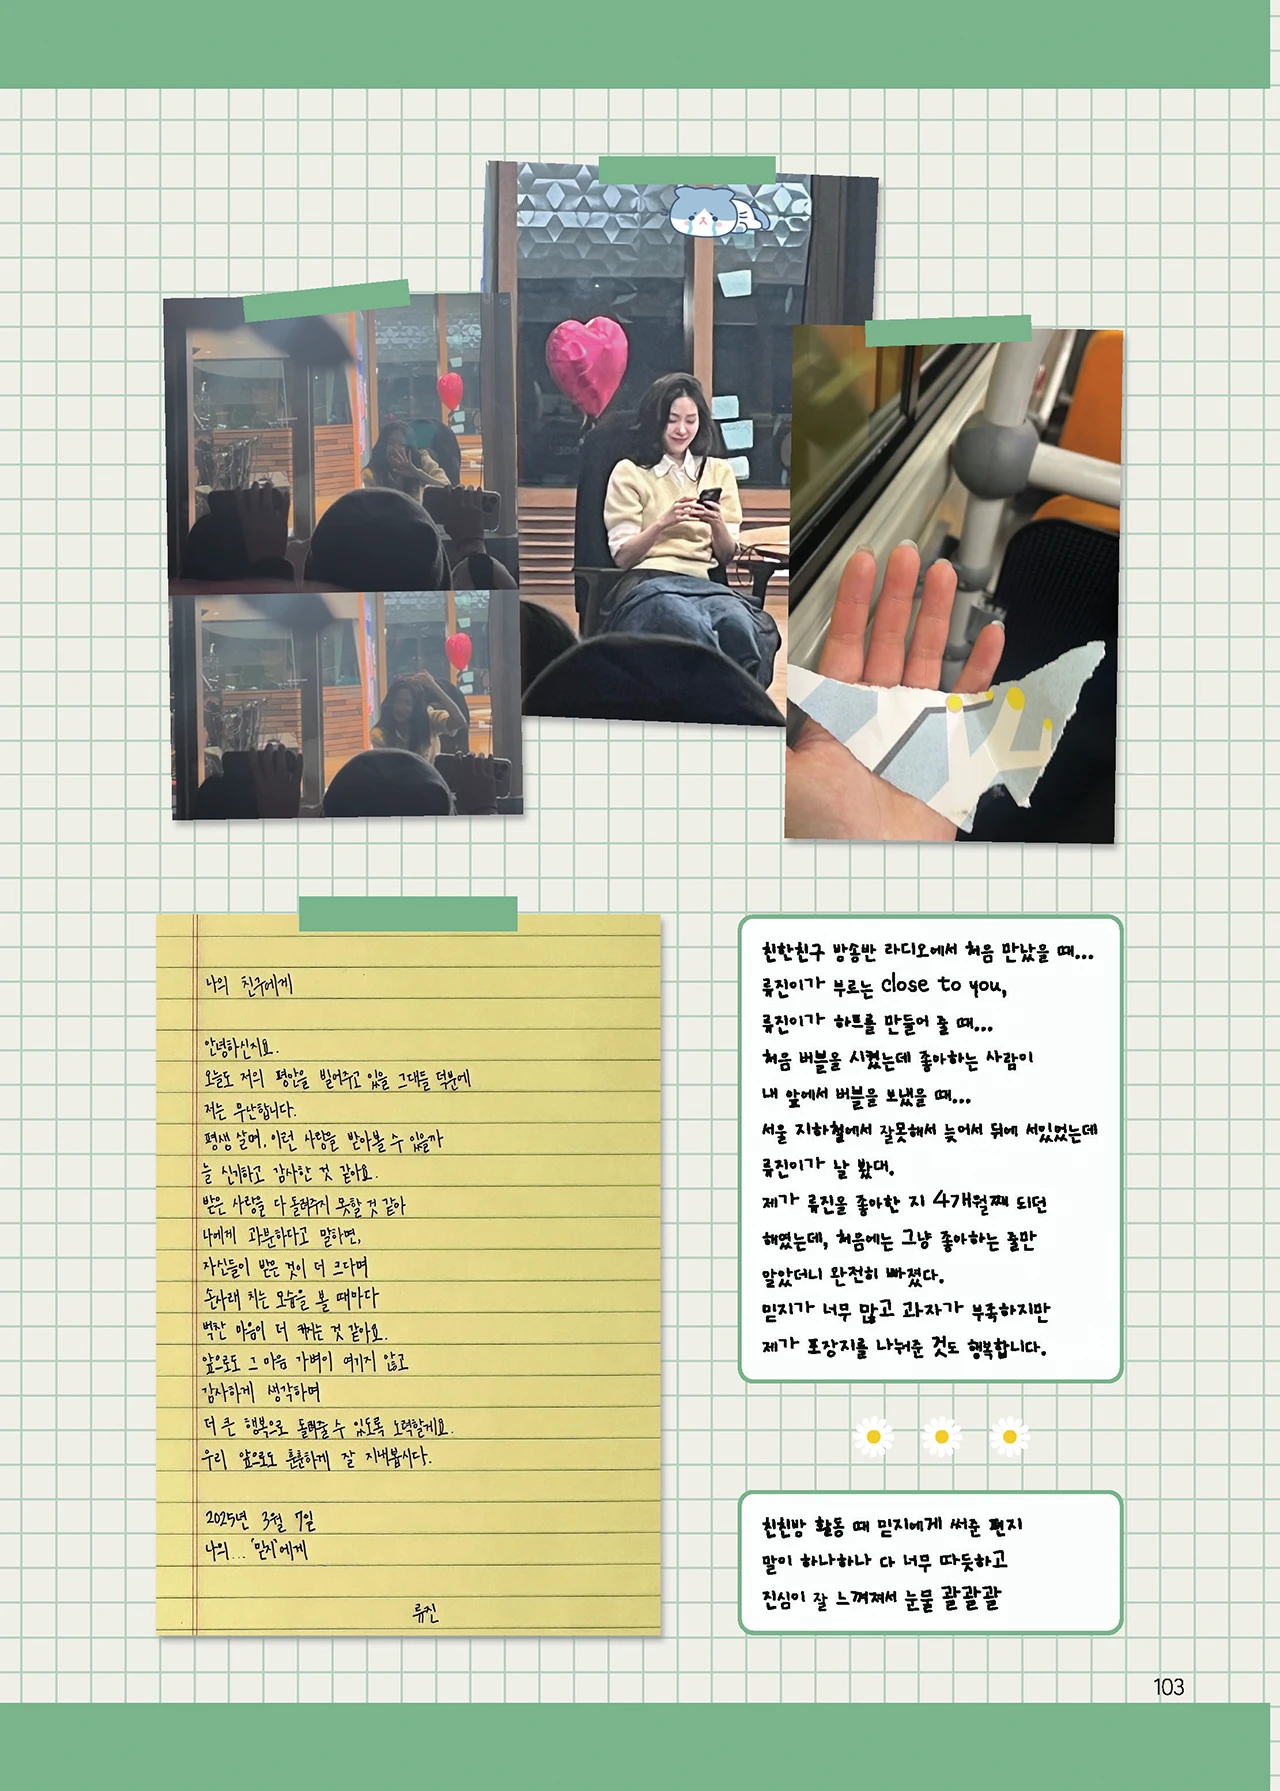 나의 친구에게
안녕하신지요.
오늘도 저의 평안을 빌어주고 있을 그대들 덕분에
저는 무난합니다.
평생 살며, 이런 사랑을 받아볼 수 있을까
늘 신기하고 감사한 것 같아요.
받은 사랑을 다 돌려주지 못할 것 같아
나에게 과분하다고 말하면,
자신들이 받은 것이 더 크다며
손사래 치는 모습을 볼 때마다
벅찬 마음이 더 커지는 것 같아요.
앞으로도 그 마음 가벼이 여기지 않고
감사하게 생각하며
더 큰 행복으로 돌려줄 수 있도록 노력할게요.
우리 앞으로도 튼튼하게 잘 지내봅시다.
2025년 3월 7일
나의... '믿지'에게
류진
친한친구 방송반 라디오에서 처음 만났을 때...
류진이가 부르는 close to you,
류진이가 하트를 만들어 줄 때...
처음 버블을 시켰는데 좋아하는 사람이
내 앞에서 버블을 보냈을 때...
서울 지하철에서 잘못해서 늦어서 뒤에 서있었는데
류진이가 날 봤대.
제가 류진을 좋아한 지 4개월째 되던
해였는데, 처음에는 그냥 좋아하는 줄만
알았더니 완전히 빠졌다.
믿지가 너무 많고 과자가 부족하지만
제가 포장지를 나눠준 것도 행복합니다.
친친방 활동 때 믿지에게 써준 편지
말이 하나하나 다 너무 따듯하고
진심이 잘 느껴져서 눈물 콸콸콸
103